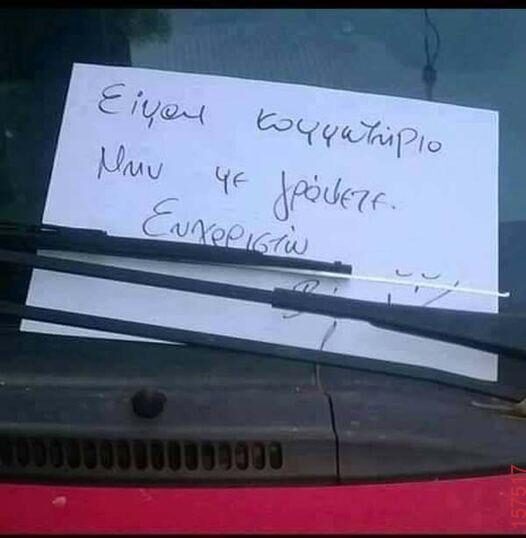 Είμαι κομμωτήριο
Μην με γράψετε.
Ευχαριστώ
157517